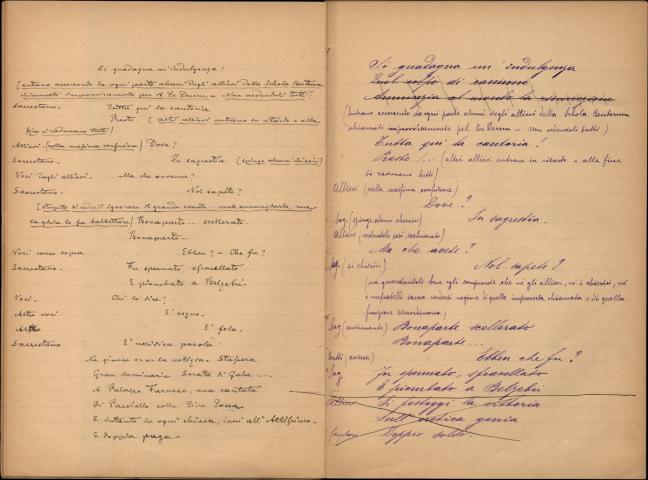 Si guadagna un' indulgenza!
(entrano accorrendo da ogni parte alcuni degli allievi della Schola Cantorum
chiamati improvvisamente per il Te Deum - Non vedendoli tutti
Sacrestano. Tutta qui la cantoria
Presto (altri allievi entrano in ritardo e alla
fine si radunano tutti)
Allievi (nella massima confusione) Dove?
Sacrestano. In sagrestia (spinge alcuni chierici)
Voci degli allievi. Ma che avvenne?
Sacrestano. Nol sapete?
(stupito di vederli ignorare il grande evento
balbettare) Bonaparte... scellerato.
Bonaparte...
Voci come sopra Ebben? - Che fu?
Sacrestano. Fu spennato, sfracellato
E piombato a Belzebù
Voci. Chi lo dice?
Altre voci È sogno.
Altre È fola.
Sacrestano È veridica parola
Ne giunse or or la notizia. Stasera
Gran luminaria Serata di gala...
A Palazzo Farnese, una cantata
Di Paesiello colla Diva Tosca
E intanto in ogni chiesa, inni all' Altissimo.
E doppia paga.
Si guadagna un' indulgenza
Quel colpo di cannone
Annunzia al mondo la
(Entrano accorrendo da ogni parte alcuni degli allievi della Schola Cantorum
chiamati improvvisamente pel Te Deum - non vedendoli tutti)
Tutta qui la cantoria!
Presto!... (altri allievi entrano in ritardo e alla fine
si radunano tutti)
Allievi (nella massima confusione)
Dove?
Sag. (spinge alcuni chierici) In sagrestia.
Allievi (vedendolo così
Ma che avete?
Sag (ai chierici) Nol sapete?
(ma guardandoli bene egli comprende che nè gli allievi, nè i chierici, nè
i sanno veruna ragione di quella improvvisa chiamata e di quella
funzione straordinaria)
Sag (Bonaparte scellerato
Bonaparte...
Tutti (curiosi) Ebbin che fu?
Sag Fu spennato, sfracellato
E piombato a Belzebù
Allievi Si festeggi la vittoria
Sull' eretica genia
Doppio soldo.